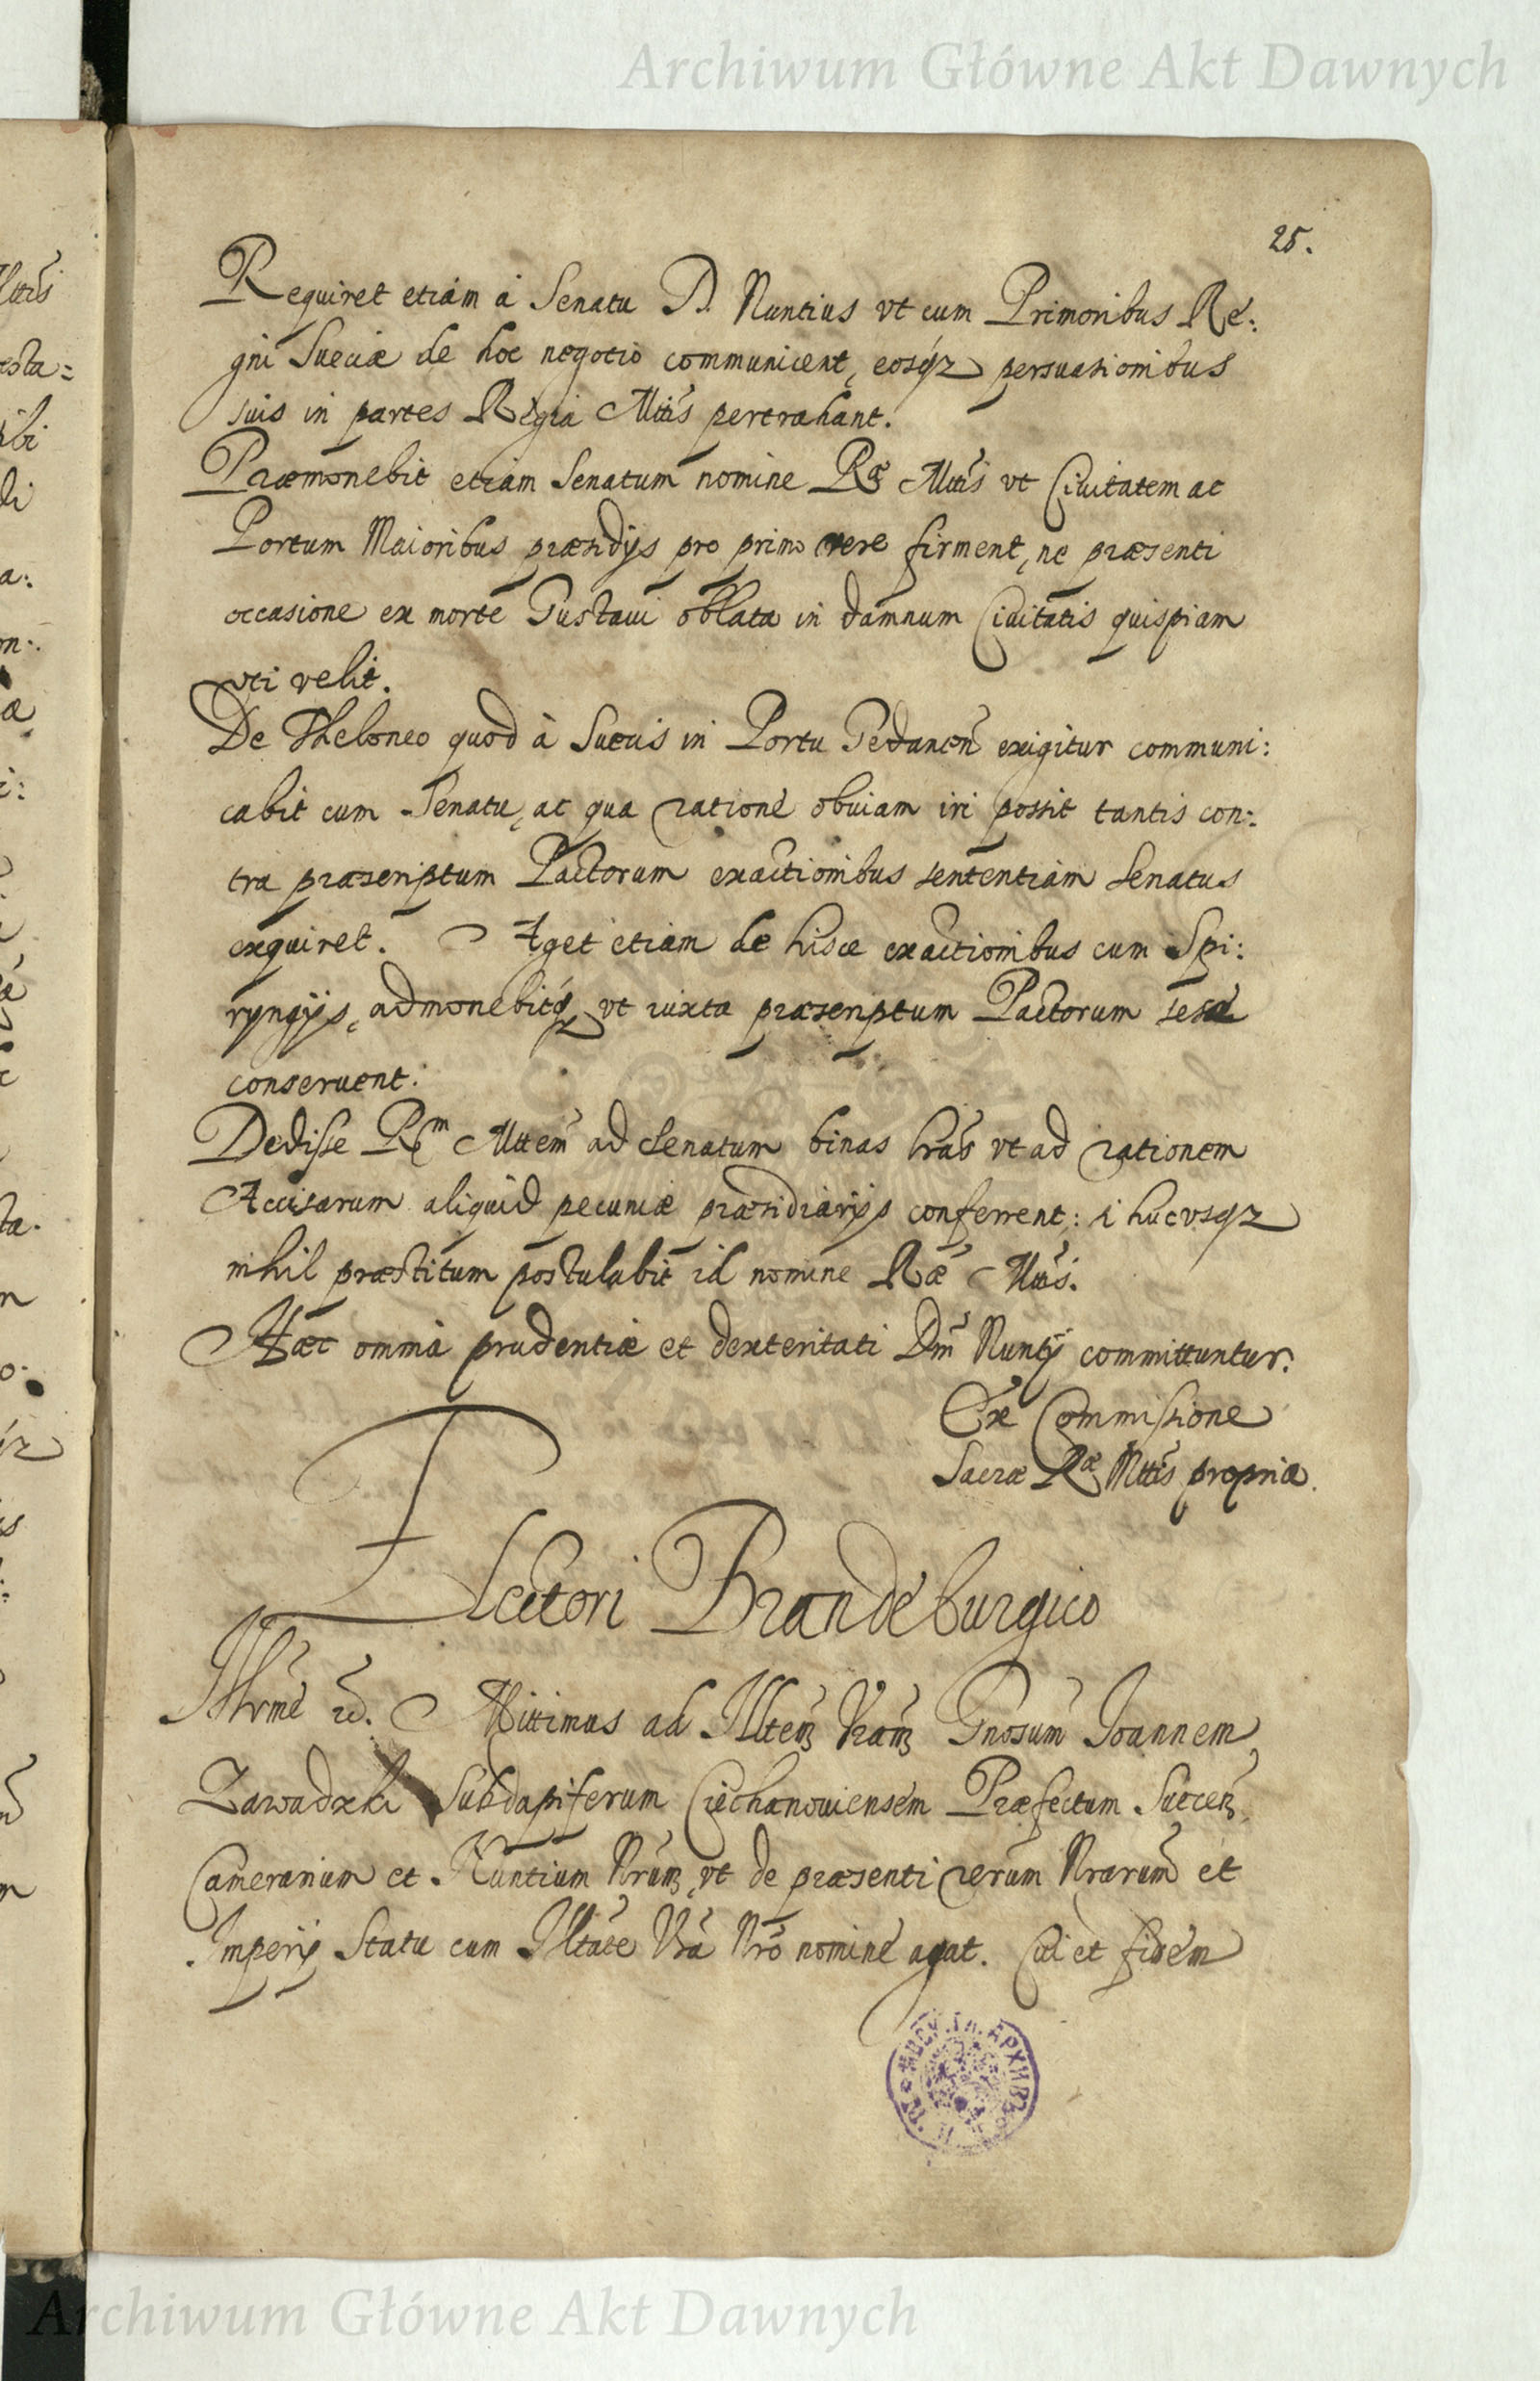 Archiwum Główne Akt Dawnych
25.
Requiret etiam à Senatu D. Nuntius vt cum Primoribus Re:
gni Sueciæ de hoc negotio communicent, eosqz persuasionibus
suis in partes Regia Mttis pertrahant.
Præmonebit etiam Senatum nomine Ræ Mttis vt Ciuitatem ac
Portum Maioribus præsidijs pro primo vere firment, ne præsenti
occasione ex morte Gustaui oblata in damnum Ciuitatis quispiam
vti velit.
De Theloneo quod à Suecis in Portu Gedanen exigitur communi:
cabit cum Senatu, ac qua ratione obuiam iri possit tantis con:
tra præscriptum Pactorum exactionibus sententiam Senatus
exquiret. Aget etiam de hisce exactionibus cum Spi:
ryngijs, admonebitqz vt iuxta præscriptum Pactorum sese
conseruent.
Dedisse Rm Mttem ad Senatum binas lras vt ad rationem
Accisarum aliquid pecuniæ præsidiarijs conferrent: i hucvsqz
nihil præstitum postulabit id nomine Ræ Mttis.
Hæc omnia prudentiæ et dexteritati Dni Nuntij committuntur.
Ex Commissione
Sacræ Ræ Mttis propria.
Electori Brandeburgico
Illrme Mittimus ad Illtem Vram Gnosum Joannem
Zawadzki Subdapiferum Ciechanouiensem Præfectum Suecen
Camerarium et Nuntium Nrum, vt de præsenti rerum Nrarum et
Imperij Statu cum Illtate Vra Nro nomine agat. Cui et fidem
Archiwum Główne Akt Dawnych